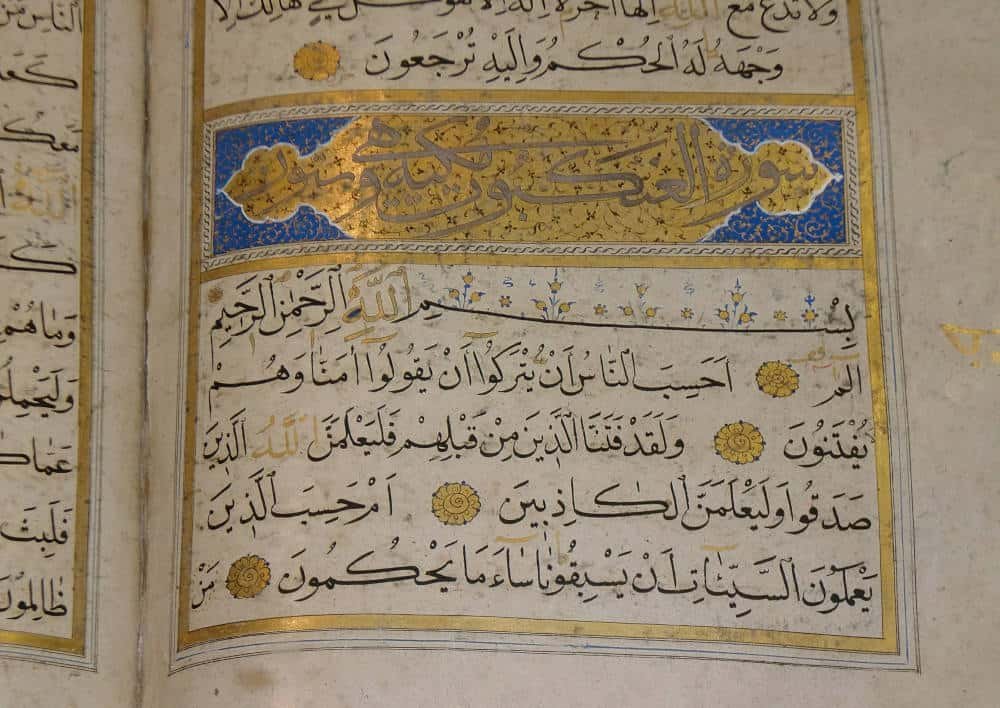 وَلَا تَدْعُ مَعَ اللّٰهِ اِلٰهًا اٰخَرَ لَا اِلٰهَ اِلَّا هُوَ كُلُّ شَيْءٍ هَالِكٌ اِلَّا
وَجْهَهُ لَهُ الْحُكْمُ وَاِلَيْهِ تُرْجَعُونَ
سورة العنكبوت مكية وهي وستون
بِسْمِ اللّٰهِ الرَّحْمٰنِ الرَّحِيمِ
الم اَحَسِبَ النَّاسُ اَنْ يُتْرَكُوا اَنْ يَقُولُوا اٰمَنَّا وَهُمْ
يُفْتَنُونَ وَلَقَدْ فَتَنَّا الَّذِينَ مِنْ قَبْلِهِمْ فَلَيَعْلَمَنَّ اللّٰهُ الَّذِينَ
صَدَقُوا وَلَيَعْلَمَنَّ الْكَاذِبِينَ اَمْ حَسِبَ الَّذِينَ
يَعْمَلُونَ السَّيِّئَاتِ اَنْ يَسْبِقُونَا سَاءَ مَا يَحْكُمُونَ مَنْ
النَّاسِ مَنْ
مَعَكُمْ
وَمَا هُمْ
وَلَيَحْمِلُنَّ
عَمَّا كَا
فَلَبِثَ
ظَالِمُونَ